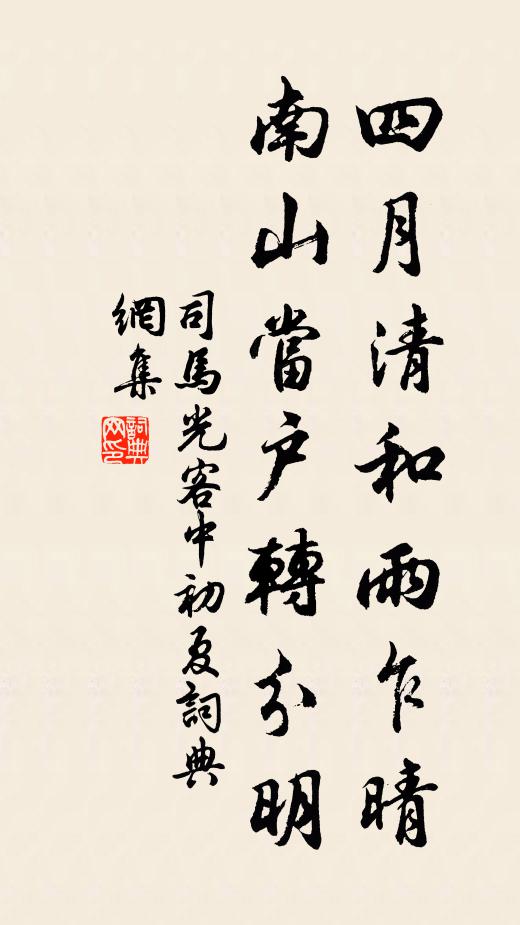 四月清和雨乍晴
南山當户轉分明
司馬光客中初夏詞典
網集
詞典
网印